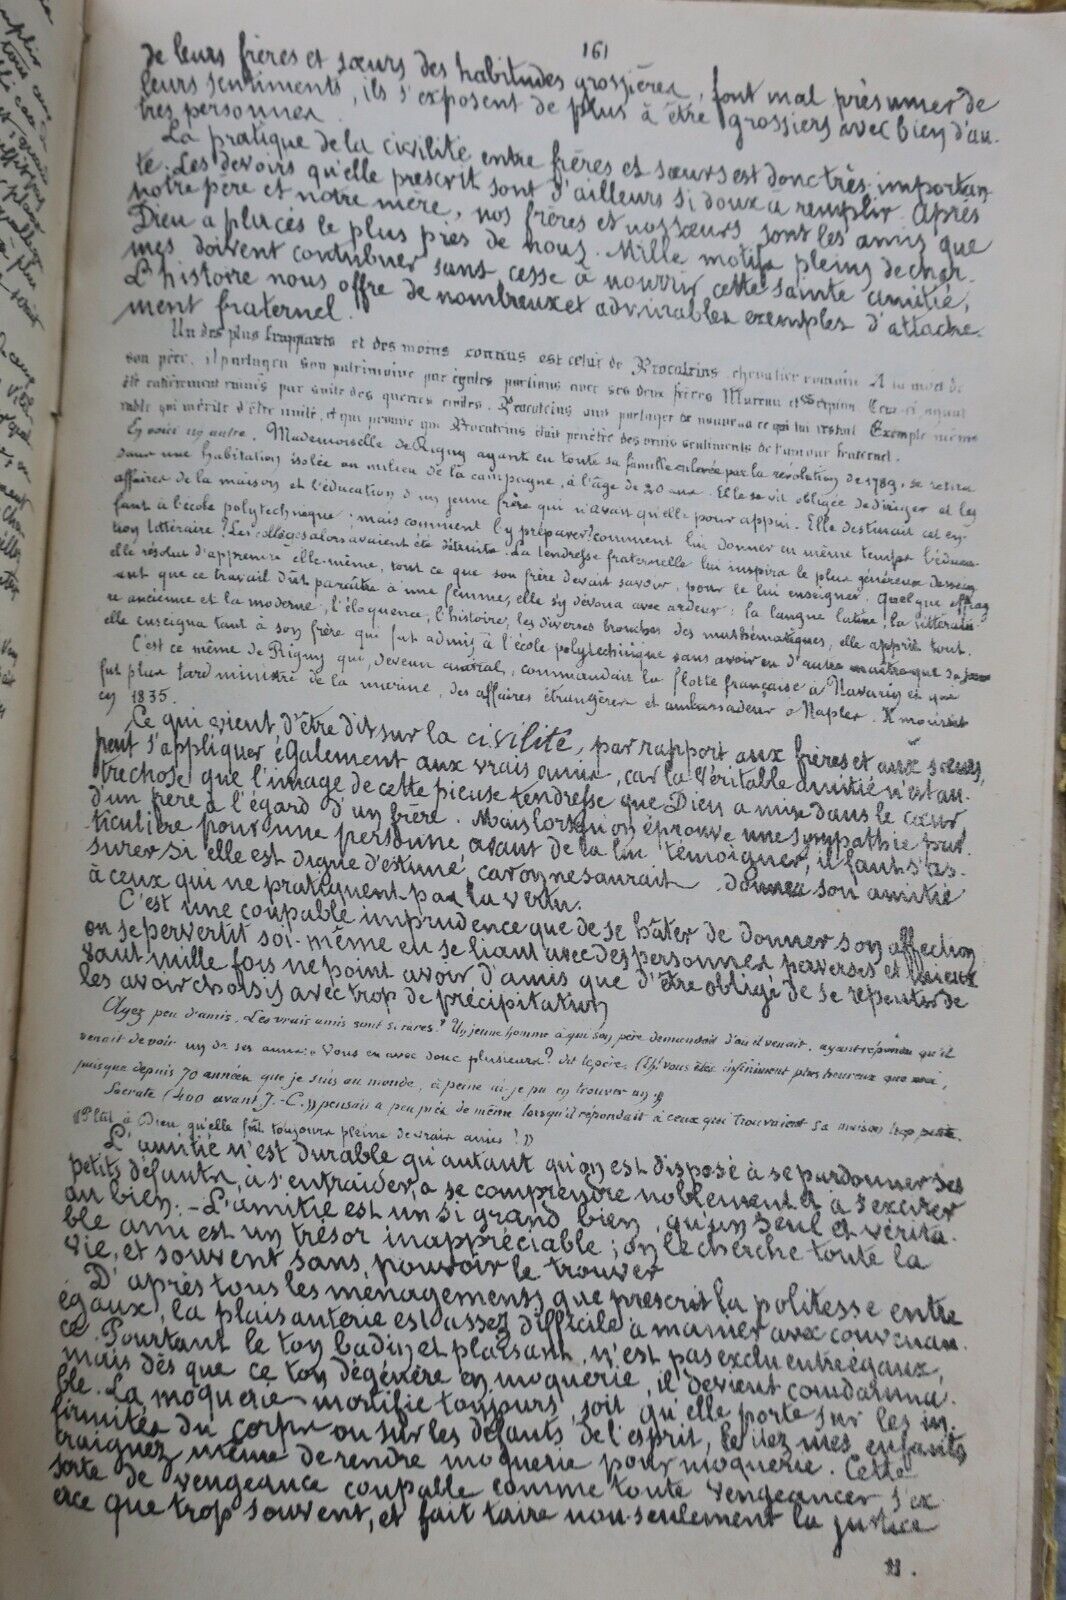 161
de leurs frères et sœurs des habitudes grossières, font mal présumer de
leurs sentiments, ils s'exposent de plus à être grossiers avec bien d'au-
tres personnes.
La pratique de la civilité entre frères et sœurs est donc très importan
te. Les devoirs qu'elle prescrit sont d'ailleurs si doux a remplir. Après
notre père et notre mère, nos frères et nos sœurs sont les amis que
Dieu a placés le plus près de nous. Mille motifs pleins de char-
mes doivent contribuer sans cesse à nourrir cette sainte amitié,
L'histoire nous offre de nombreux et admirables exemples d'attache-
ment fraternel.
Un des plus frappants et des moins connus est celui de Procatrins, chevalier romain. A la mort de
son père, il partagea son patrimoine par égales portions avec ses deux frères Murena et Scepion. Ceux-ci ayant
été entièrement ruinés par suite des guerres civiles, Procateins partager de nouveau ce qui lui restait. Exemple mémo
rable qui mérite d'être imité, et qui prouve que Procatrins était pénétré des vrais sentiments de l'amour fraternel.
En voici un autre. Mademoiselle de Rigny ayant eu toute sa famille enlevée par la révolution de 1789, se retira
dans une habitation isolée au milieu de la campagne, à l'âge de 20 ans. Elle se vit obligée de diriger et les
affaires de la maison et l'éducation d'un jeune frère qui n'avait qu'elle pour appui. Elle destinait cet en-
fant à l'école polytechnique; mais comment l'y préparer? comment lui donner en même temps l'éduca-
tion littéraire? Les collèges alors avaient été détruits. La tendresse fraternelle lui inspira le plus généreux dessein
elle résolut d'apprendre elle-même, tout ce que son frère devait savoir, pour le lui enseigner. Quelque effray
ant que ce travail dût paraître à une femme, elle s'y dévoua avec ardeur: la langue latine, la littératu
re ancienne et la moderne, l'éloquence, l'histoire, les diverses branches des mathématiques, elle apprit tout.
elle enseigna tant à son frère qui fut admis à l'école polytechnique sans avoir eu d'autre maître que sa
C'est ce même de Rigny qui, devenu amiral, commandait la flotte française à Navarin et que
fut plus tard ministre de la marine, des affaires étrangères et ambassadeur à Naples. Il mourut
en 1835.
Ce qui vient d'être dit sur la civilité, par rapport aux frères et aux sœurs,
peut s'appliquer également aux vrais amis, car la véritable amitié n'est au-
tre chose que l'image de cette pieuse tendresse que Dieu a mise dans le cœur
d'un frère à l'égard d'un frère. Mais lorsqu'on éprouve une sympathie par-
ticulière pour une personne, avant de la lui témoigner, il faut s'as-
surer si elle est digne d'estime, car on ne saurait donner son amitié
à ceux qui ne pratiquent pas la vertu.
C'est une coupable imprudence que de se hâter de donner son affection
on se pervertit soi-même en se liant avec des personnes perverses et mieux
vaut mille fois ne point avoir d'amis que d'être obligé de se repentir de
les avoir choisis avec trop de précipitation
Ayez peu d'amis. Les vrais amis sont si rares! Un jeune homme à qui son père demandait d'où il venait, ayant répondu qu'il
venait de voir un de ses amis: « Vous en avez donc plusieurs? dit le père. Eh! vous êtes infiniment plus heureux que moi,
puisque depuis 70 années que je suis au monde, à peine ai-je pu en trouver un.»
Socrate (400 avant J.-C.) pensait a peu près de même lorsqu'il répondait à ceux qui trouvaient sa maison trop petite.
«Plût à Dieu qu'elle fût toujours pleine de vrais amis!»
L'amitié n'est durable qu'autant qu'on est disposé à se pardonner ses
petits défauts, à s'entraider, à se comprendre noblement et à s'exciter
au bien. - L'amitié est un si grand bien, qu'un seul et vérita-
ble ami est un trésor inappréciable; on le cherche toute la
vie, et souvent sans pouvoir le trouver
D'après tous les ménagements que prescrit la politesse entre
égaux, la plaisanterie est assez difficile à manier avec convenan-
ce. Pourtant le ton badin et plaisant n'est pas exclu entre égaux,
mais dès que ce ton dégénère en moquerie, il devient condamna-
ble. La moquerie mortifie toujours, soit qu'elle porte sur les in-
firmités du corps ou sur les défauts de l'esprit, évitez mes enfants
craignez même de rendre moquerie pour moquerie. Cette
sorte de vengeance coupable comme toute vengeance, s'ex
erce que trop souvent, et fait taire non-seulement la justice
11.